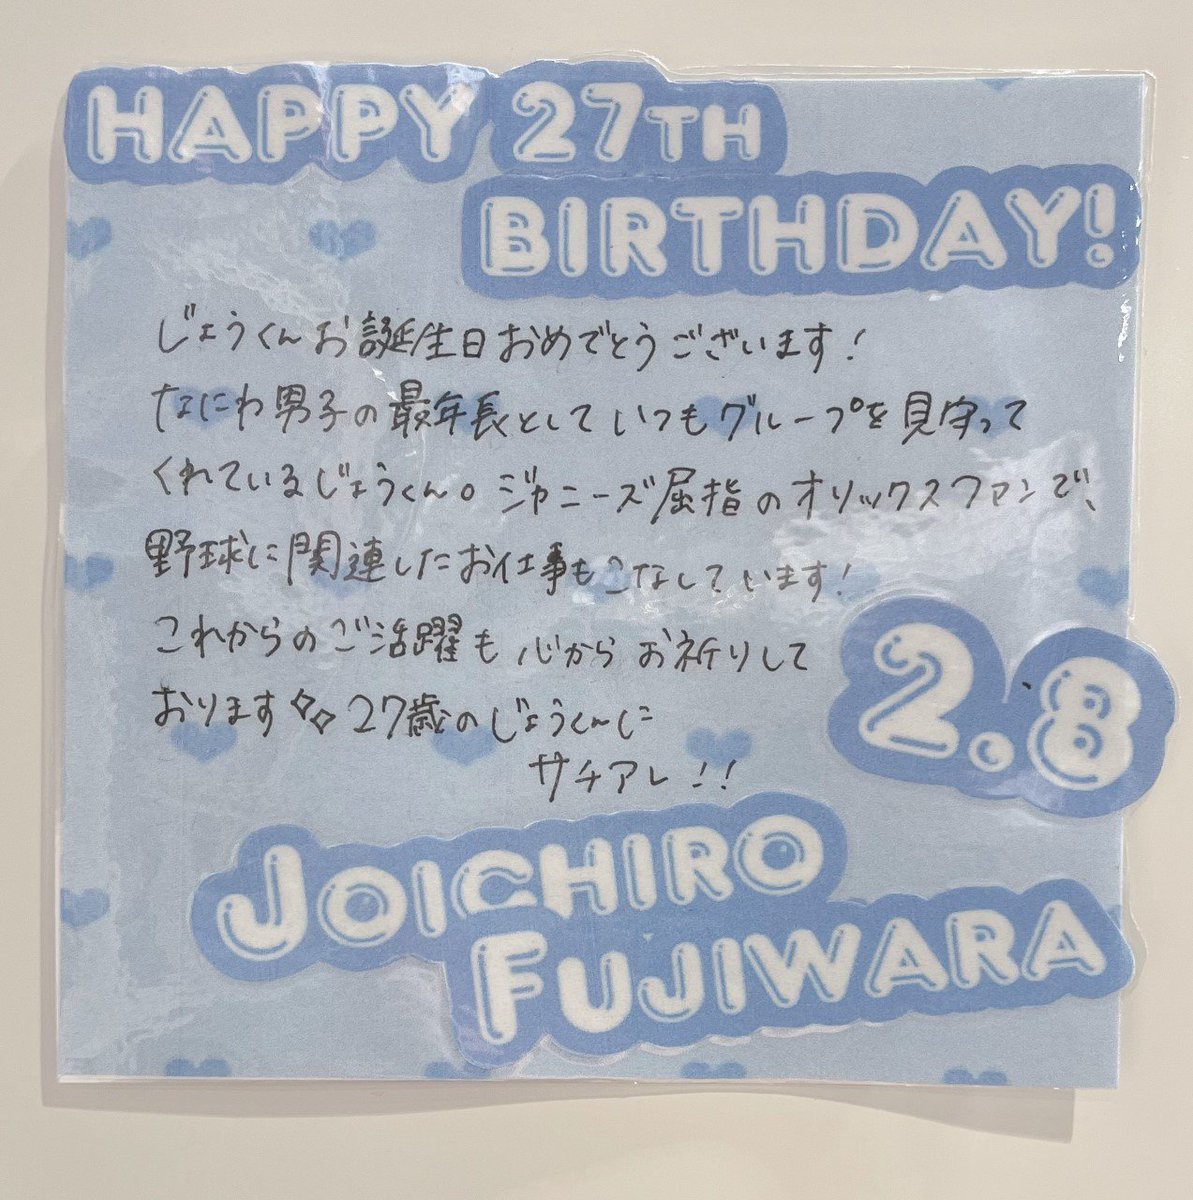 HAPPY 27TH
BIRTHDAY!
じょうくんお誕生日おめでとうございます!
なにわ男子の最年長としていつもグループを見守って
くれているじょうくん。ジャニーズ屈指のオリックスファンで、
野球に関連したお仕事もこなしています!
これからのご活躍も心からお祈りして
おります 27歳のじょうくんに
サチアレ!!
2.8
JOICHIRO
FUJIWARA